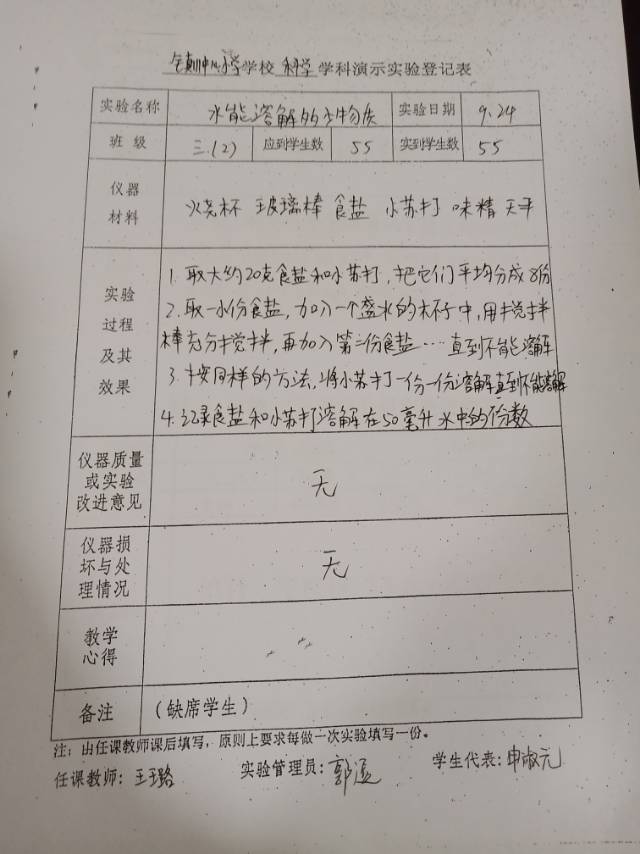 镇中心小学学校 科学 学科演示实验登记表
实验名称 水能溶解多少物质 实验日期 9.24
班 级 三.(2) 应到学生数 55 实到学生数 55
仪器材料 烧杯 玻璃棒 食盐 小苏打 味精 天平
实验过程及其效果
1. 取大约20克食盐和小苏打,把它们平均分成8份
2. 取一小份食盐,加入一个盛水的杯子中,用搅拌
棒充分搅拌,再加入第二份食盐……直到不能溶解
3. 按同样的方法,将小苏打一份一份溶解直到不能溶解
4. 记录食盐和小苏打溶解在50毫升水中的份数
仪器质量或实验改进意见 无
仪器损坏与处理情况 无
教学心得
备注 (缺席学生)
注:由任课教师课后填写,原则上要求每做一次实验填写一份。
任课教师:王璐 实验管理员:郭 学生代表:申淑元